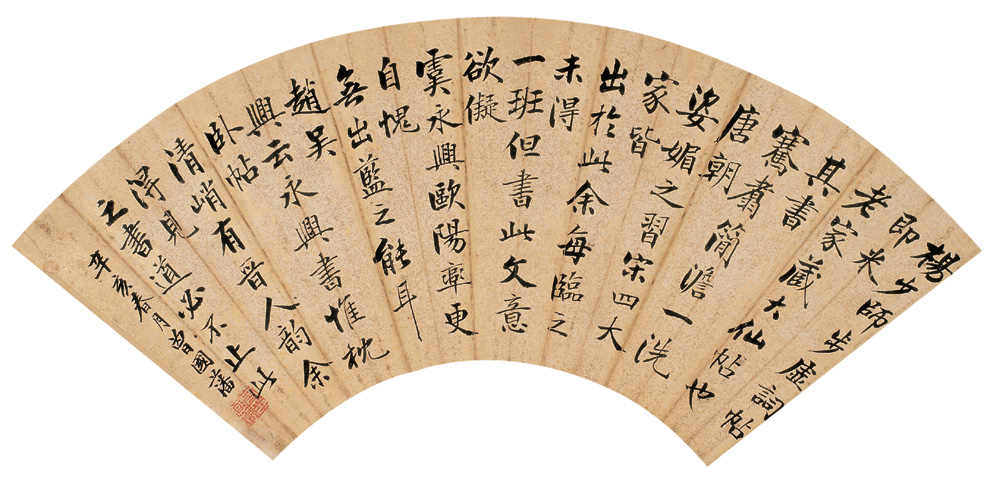 楊少師步虛詞帖
即米
老家藏大仙帖也
其書
騫肅簡澹一洗
唐朝
姿媚之習宋四大
家皆
出於此余每臨之
未得
一班但書此文意
欲儗
虞永興歐陽率更
自愧
無出藍之能耳
趙吳
興云永興書惟枕
臥帖
清峭有晉人韻余
得見
之書道必不止此
辛亥春月曾國藩